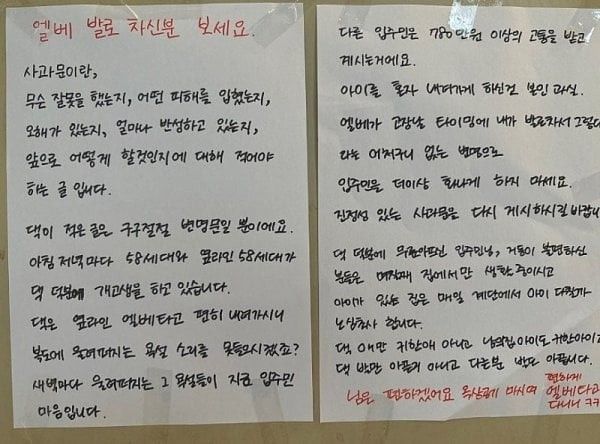 엘베 발로 차신분 보세요.
사과문이란,
무슨 잘못을 했는지, 어떤 피해를 입혔는지,
오해가 있는지, 얼마나 반성하고 있는지,
앞으로 어떻게 할것인지에 대해 적어야
하는 글 입니다.
댁이 적은 글은 구구절절 변명문일 뿐이에요.
아침 저녁마다 58세대와 옆라인 58세대가
댁 덕분에 개고생을 하고 있습니다.
댁은 옆라인 엘베타고 편히 내려가시니
복도에 울려퍼지는 욕설 소리를 못들으시겠죠?
새벽마다 울려퍼지는 그 욕설들이 지금 입주민
마음입니다.
다른 입주민은 780만원 이상의 고통을 받고
계시는거에요.
아이를 혼자 내려가게 하신건 본인 과실.
엘베가 고장날 타이밍에 내가 발로차서 그렇다
라는 어처구니 없는 변명으로
입주민을 더이상 화나게 하지 마세요.
진정성 있는 사과문을 다시 게시하시길 바랍니다
댁 덕분에 무릎아프신 입주민님, 거동이 불편하신
분들은 며칠째 집에서만 생활 중이시고
아이가 있는 집은 매일 계단에서 아이 다칠까
노심초사 합니다.
댁 애만 귀한애 아니고 남의집 아이도 귀한아이고
댁 발만 아픈게 아니고 다른분 발도 아픕니다.
님은 편하겠어요 마시며 편하게
엘베타고
다니니 ㅋㅋ